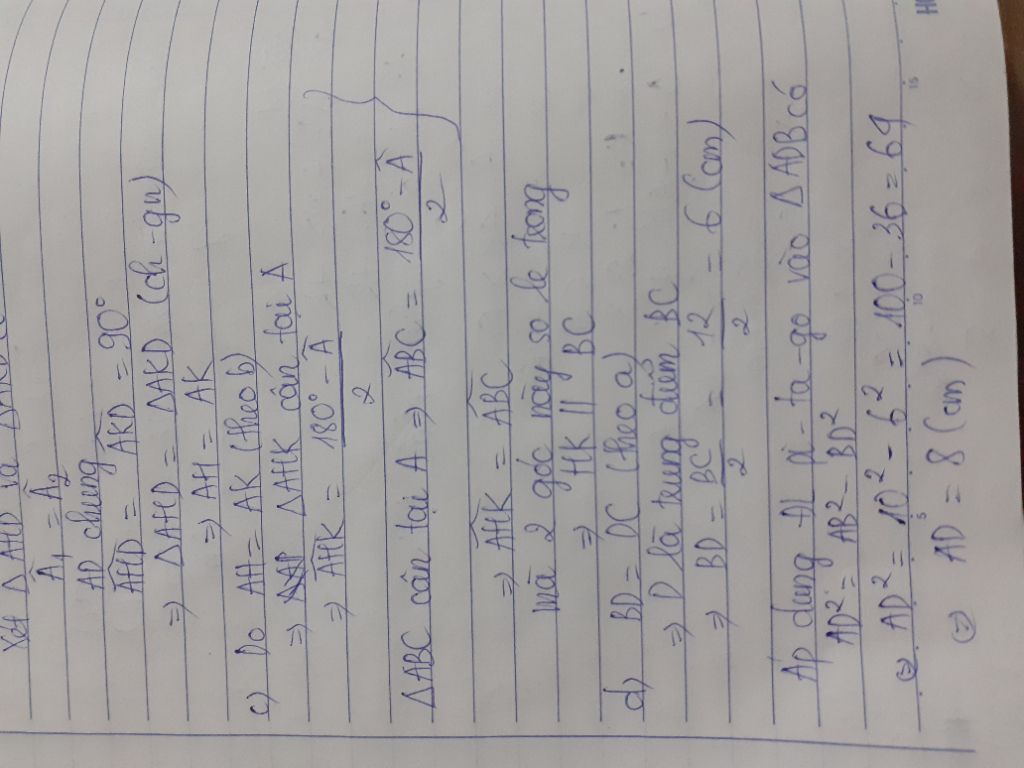 Xét Δ AHD và Δ AKD
Â1 = Â2
AD chung
AHD = AKD = 90°
⇒ ΔAHD = ΔAKD (ch - gn)
⇒ AH = AK
c) Do AH = AK (theo b)
⇒ ΔAHK cân tại A
⇒ AHK = (180° - Â)/2
ΔABC cân tại A ⇒ ABC = (180° - Â)/2
⇒ AHK = ABC
mà 2 góc này so le trong
⇒ HK || BC
d) BD = DC (theo a)
⇒ D là trung điểm BC
⇒ BD = BC/2 = 12/2 = 6 (cm)
Áp dụng ĐL pi - ta - go vào Δ ADB có
AD² = AB² - BD²
AD² = 10² - 6² = 100 - 36 = 64
AD = 8 (cm)
5 10 15